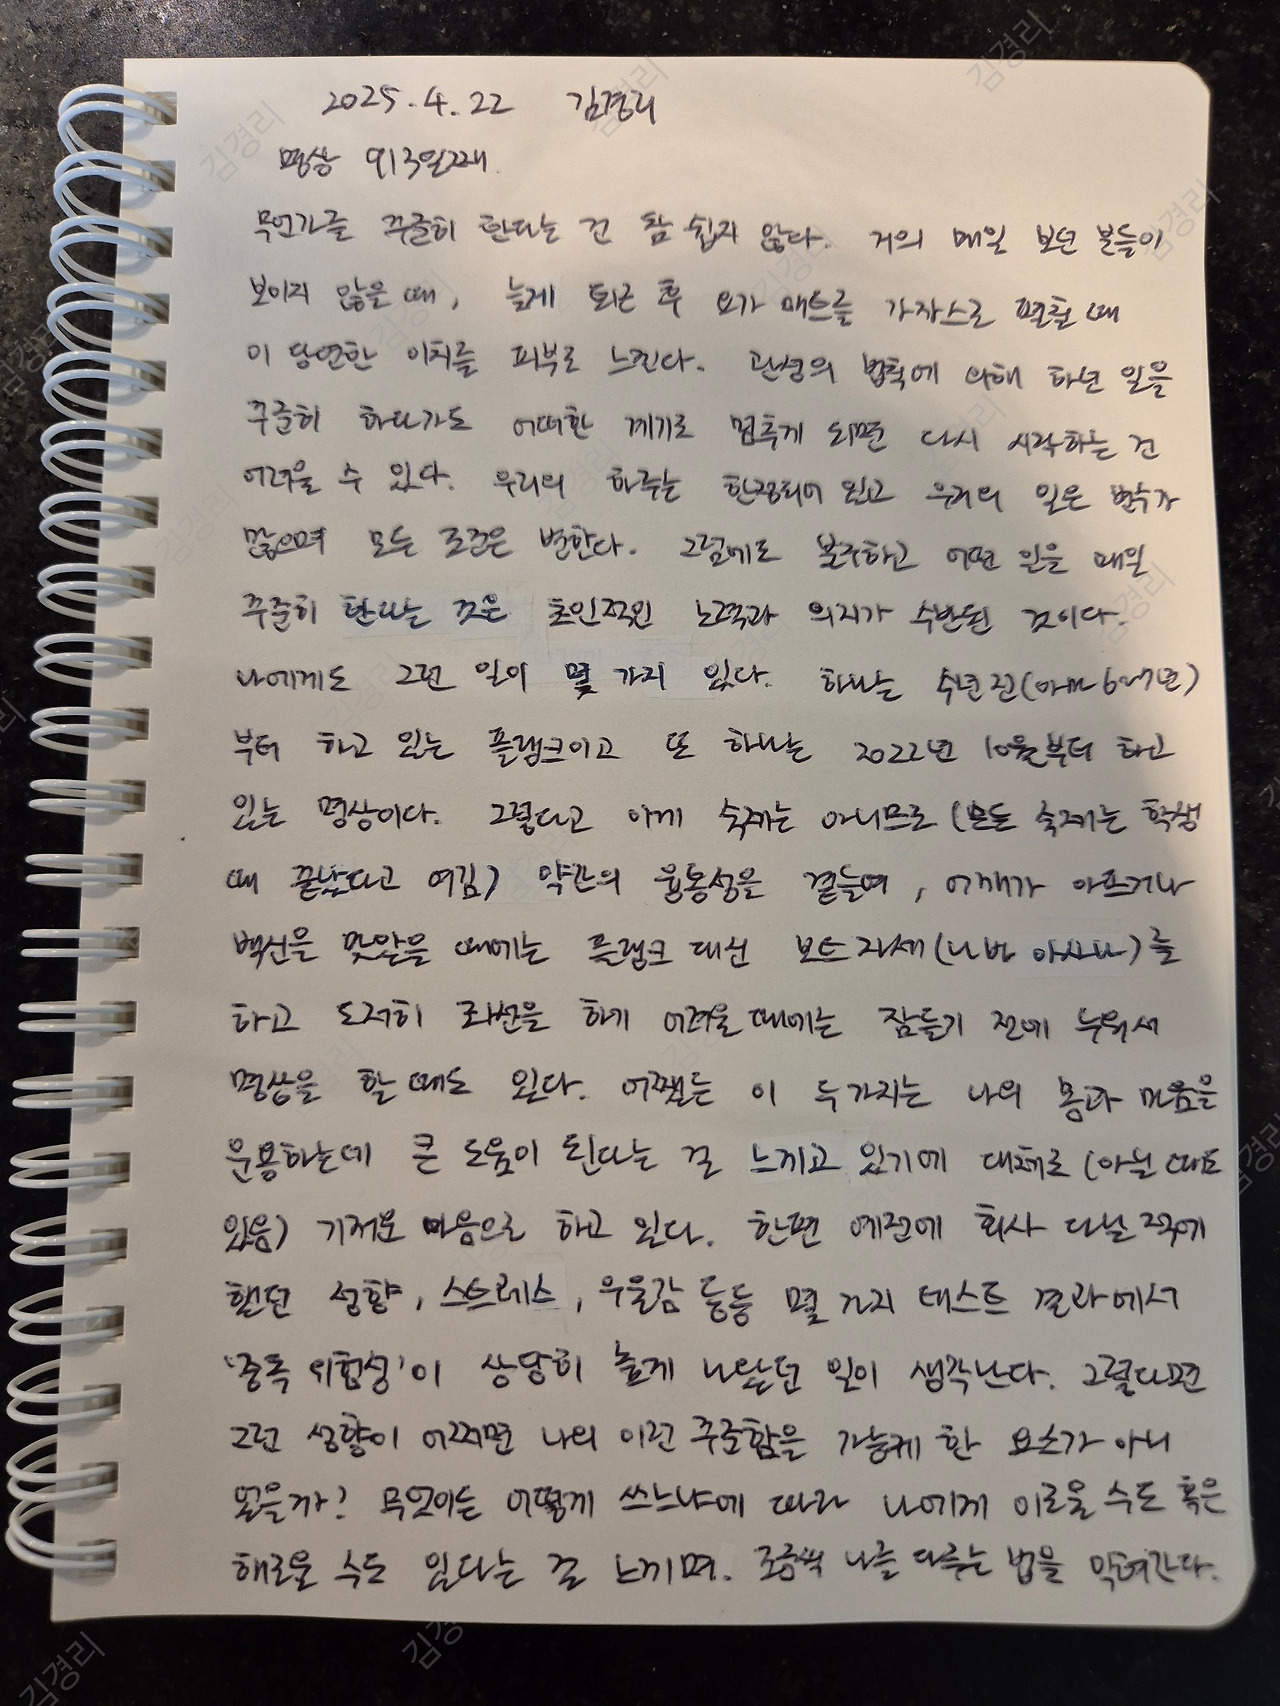 2025.4.22 김경리
명상 913일째.
무언가를 꾸준히 한다는 건 참 쉽지 않다. 거의 매일 보던 분들이
보이지 않을 때, 늦게 퇴근 후 요가 매트를 가자스로 펼칠 때
이 당연한 이치를 피부로 느낀다. 관성의 법칙에 의해 하던 일을
꾸준히 하다가도 어떠한 계기로 멈추게 되면 다시 시작하는 건
어려울 수 있다. 우리의 하루는 한정되어 있고 우리의 일은 변수가
많으며 모든 조건은 변한다. 그럼에도 불구하고 어떤 일을 매일
꾸준히 한다는 것은 초인적인 노력과 의지가 수반된 것이다.
나에게도 그런 일이 몇 가지 있다. 하나는 수년 전(아마 6~7년)
부터 하고 있는 플랭크이고 또 하나는 2022년 10월부터 하고
있는 명상이다. 그렇다고 이게 숙제는 아니므로 (모든 숙제는 학생
때 끝났다고 여김) 약간의 융통성을 곁들여, 어깨가 아프거나
백신을 맞았을 때에는 플랭크 대신 보트자세(나바 아사나)를
하고 도저히 좌선을 하기 어려울 때에는 잠들기 전에 누워서
명상을 할 때도 있다. 어쨌든 이 두가지는 나의 몸과 마음을
운용하는데 큰 도움이 된다는 걸 느끼고 있기에 대체로 (아닐 때도
있음) 기꺼운 마음으로 하고 있다. 한편 예전에 회사 다닐 적에
했던 성향, 스트레스, 우울감 등등 몇 가지 테스트 결과에서
'중독 위험성'이 상당히 높게 나왔던 일이 생각난다. 그렇다면
그런 성향이 어쩌면 나의 이런 꾸준함을 가능케 한 요소가 아니
었을까? 무엇이든 어떻게 쓰느냐에 따라 나에게 이로울 수도 혹은
해로울 수도 있다는 걸 느끼며. 조금씩 나를 다루는 법을 익혀간다.
김경리